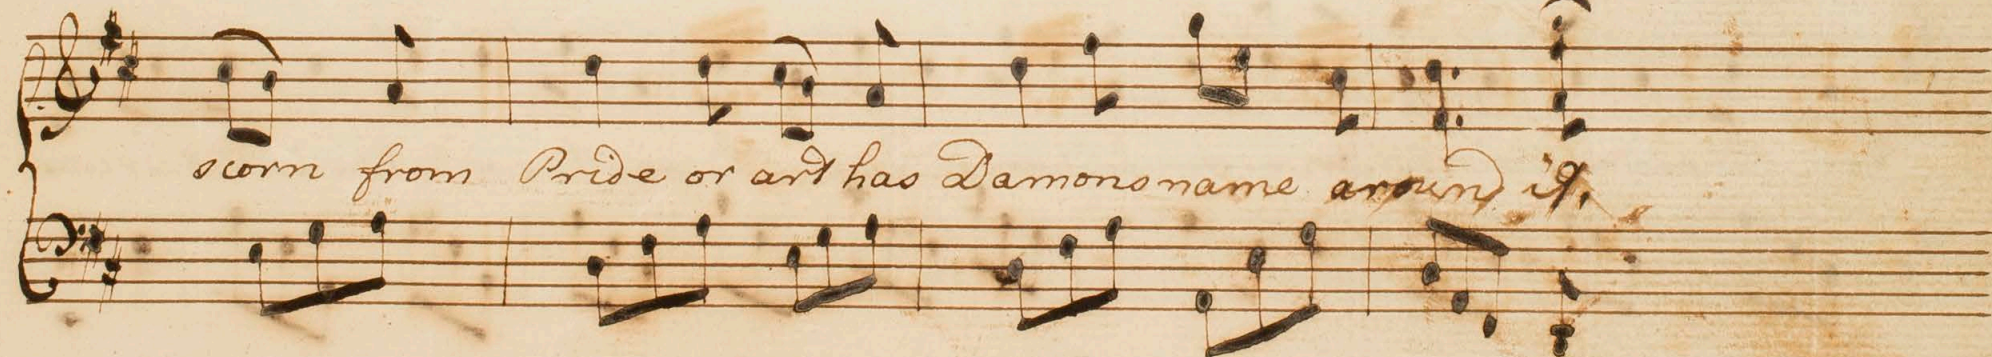 scorn from Pride or art has Damons name around it.